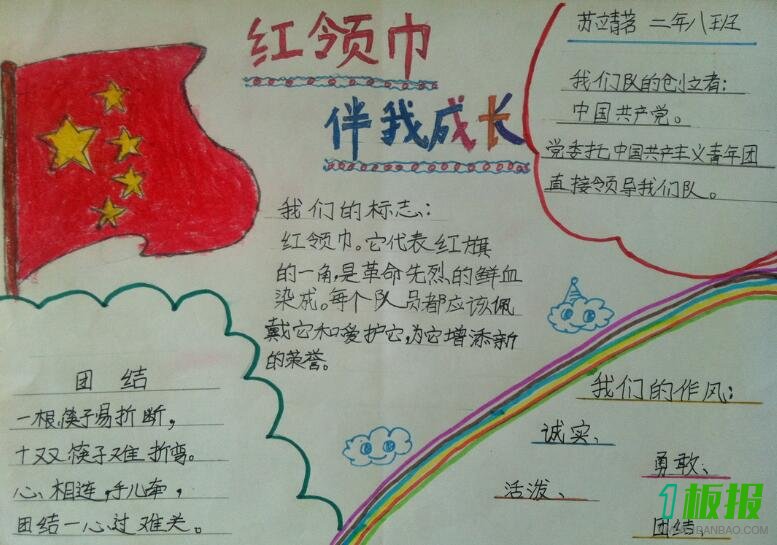 红领巾
伴我成长
苏靖茗 二年八班
我们队的创立者:
中国共产党。
党委托中国共产主义青年团
直接领导我们队。
我们的标志:
红领巾。它代表红旗
的一角,是革命先烈的鲜血
染成。每个队员都应该佩
戴它和爱护它,为它增添新
的荣誉。
团结
一根筷子易折断,
十双筷子难折弯。
心相连,手儿牵,
团结一心过难关。
我们的作风:
诚实、
勇敢、
活泼、
团结、
1板报